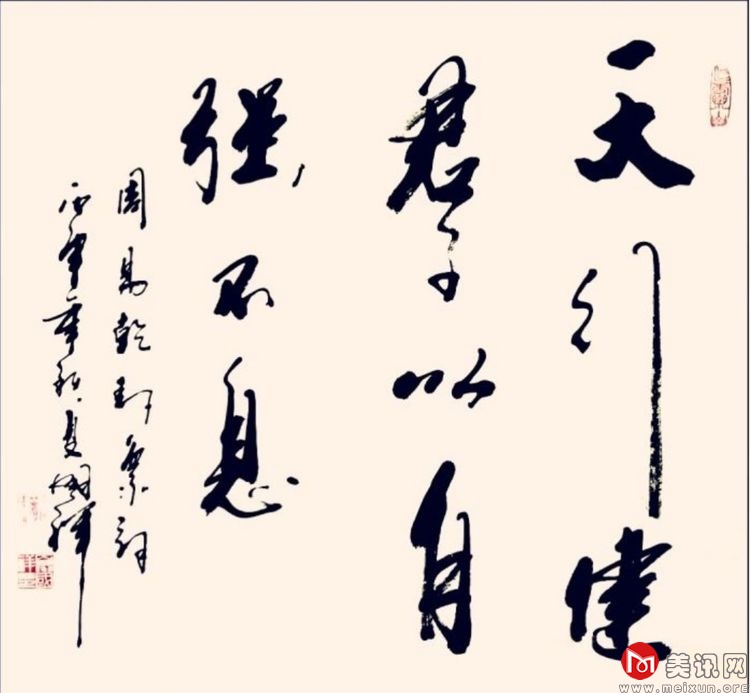 天行健
君子以自
强不息
周易乾卦象辞
夏国
美讯网
www.meixun.org